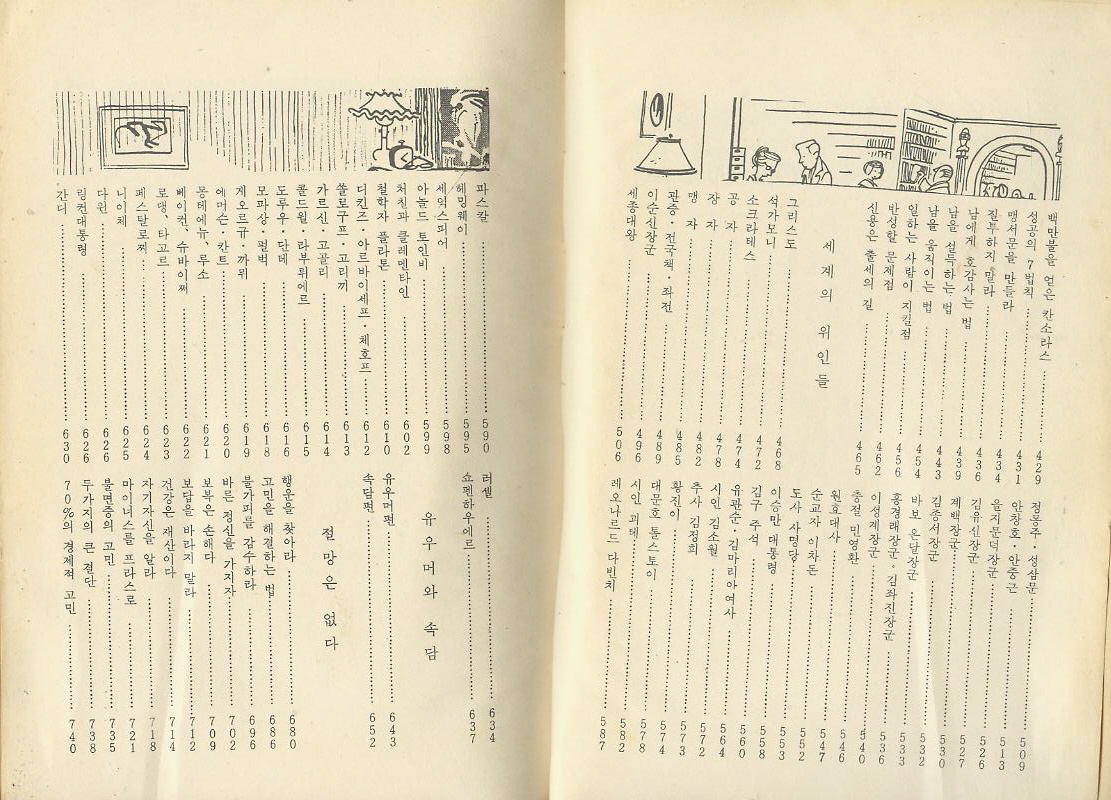 백만불을 얻은 칸소라스 429
성공의 7법칙 431
맹서문을 만들라 434
질투하지 말라 436
남에게 호감사는 법 439
남을 설득하는 법 443
남을 움직이는 법 454
일하는 사람이 지킬점 456
반성할 문제점 462
신용은 출세의 길 465
세계의 위인들
그리스도 468
석가모니 472
소크라테스 474
공자 478
장자 482
맹자 485
관중·전국책·좌전 489
이순신장군 496
세종대왕 506
정몽주·성삼문 509
안창호·안중근 513
을지문덕장군 526
김유신장군 527
계백장군 530
김종서장군 532
바보 온달장군 533
홍경래장군·김좌진장군 536
이성계장군 540
충절 민영환 546
원효대사 547
순교자 이차돈 552
도사 사명당 553
이승만 대통령 558
김구 주석 560
유관순·김마리아여사 564
시인 김소월 572
추사 김정희 573
황진이 574
대문호 톨스토이 578
시인 괴테 582
레오나르드 다빈치 587
파스칼 590
헤밍웨이 595
세익스피어 598
아놀드 토인비 599
처칠과 클레멘타인 602
철학자 플라톤 610
디킨즈·아르바이세프·체호프 612
쏠로구프·고리끼 613
가르신·고골리 614
콜드월·라부뤼에르 615
도루우·단테 616
모파상·펄벅 618
게오르규·까뮈 619
에머슨·칸트 620
몽테에뉴, 루소 621
베이컨, 슈바이쩌 622
로댕, 타고르 623
페스탈로찌 624
니이체 625
다윈 626
링컨대통령 626
간디 630
러셀 634
쇼펜하우에르 637
유우머와 속담
유우머편 643
속담편 652
절망은 없다
행운을 찾아라 680
고민을 해결하는 법 686
불가피를 감수하라 696
바른 정신을 가지자 702
보복은 손해다 709
보답을 바라지 말라 712
건강은 재산이다 714
자기자신을 알라 718
마이너스를 프라스로 721
불면증의 고민 735
두가지의 큰 결단 738
70%의 경제적 고민 740